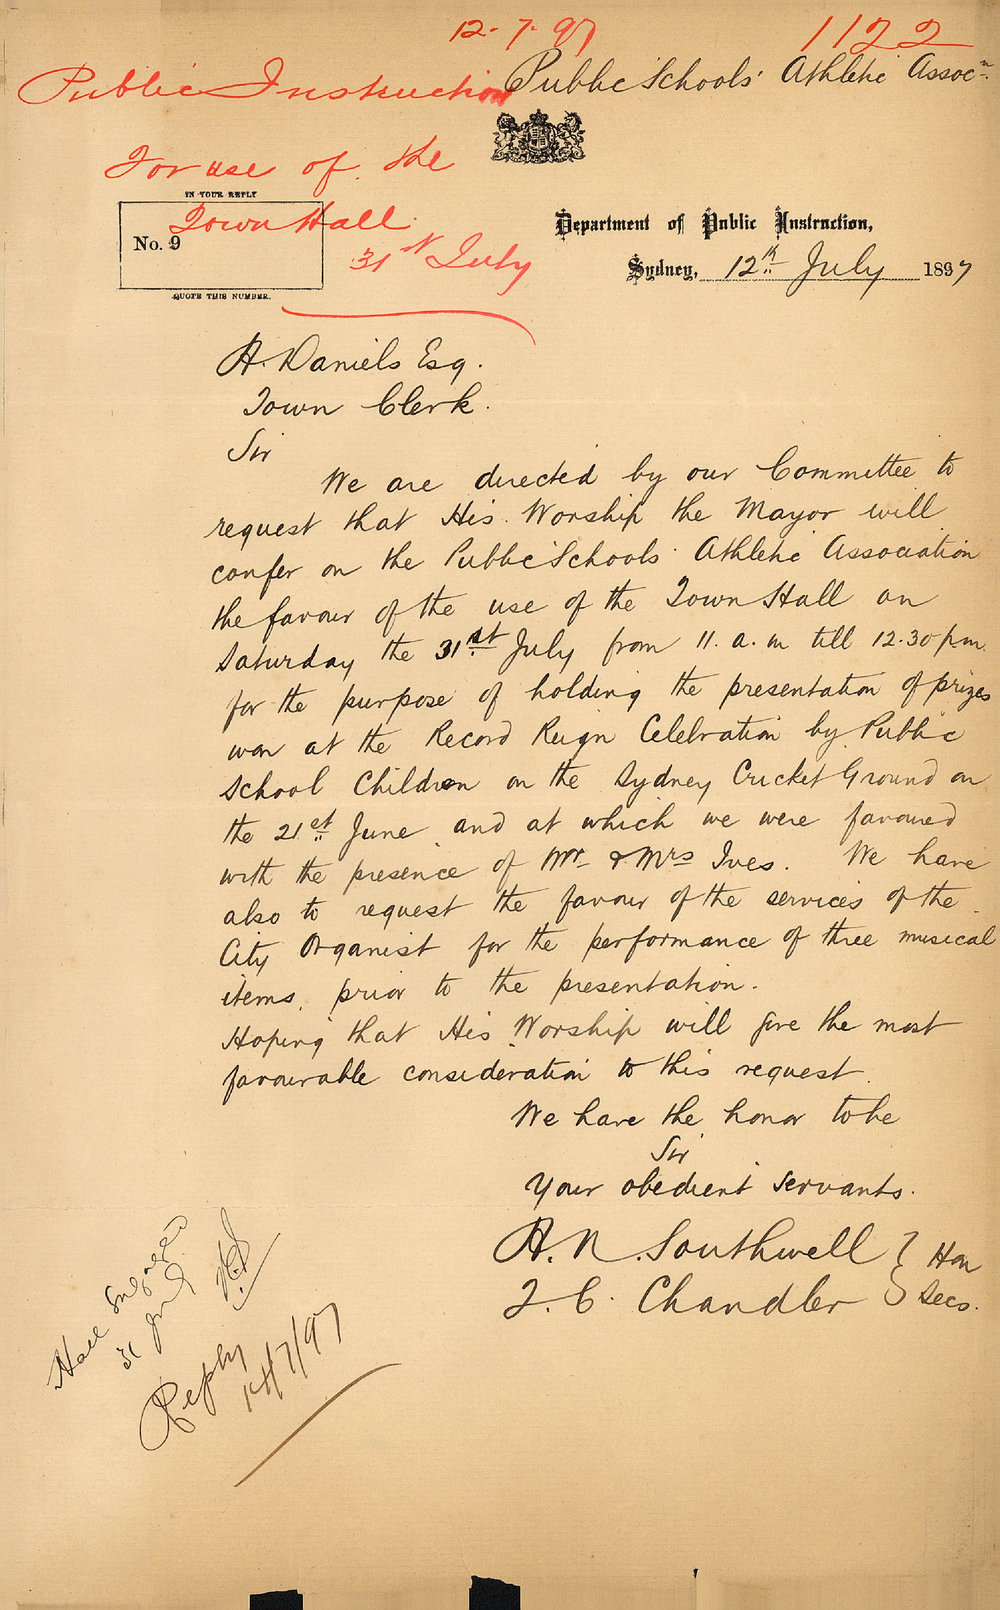 12-7-97
1122
Public Instruction
Public Schools' Athletic Assocn.
For use of the
Town Hall
31st July
IN YOUR REPLY
No. 9
QUOTE THIS NUMBER.
Department of Public Instruction,
Sydney, 12th July 1897
H. Daniels Esq.
Town Clerk.
Sir
We are directed by our Committee to
request that His Worship the Mayor will
confer on the Public Schools' Athletic Association
the favour of the use of the Town Hall on
Saturday the 31st July from 11. a.m till 12.30 p.m.
for the purpose of holding the presentation of prizes
won at the Record Reign Celebration by Public
School Children on the Sydney Cricket Ground on
the 21st June and at which we were favoured
with the presence of Mr & Mrs Ives. We have
also to request the favour of the services of the
City Organist for the performance of three musical
items, prior to the presentation.
Hoping that His Worship will give the most
favourable consideration to this request.
We have the honor to be
Sir
Your obedient servants.
H. N. Southwell } Hon
J. C. Chandler } Secs.
Hall engaged
31 July
Reply
14/7/97